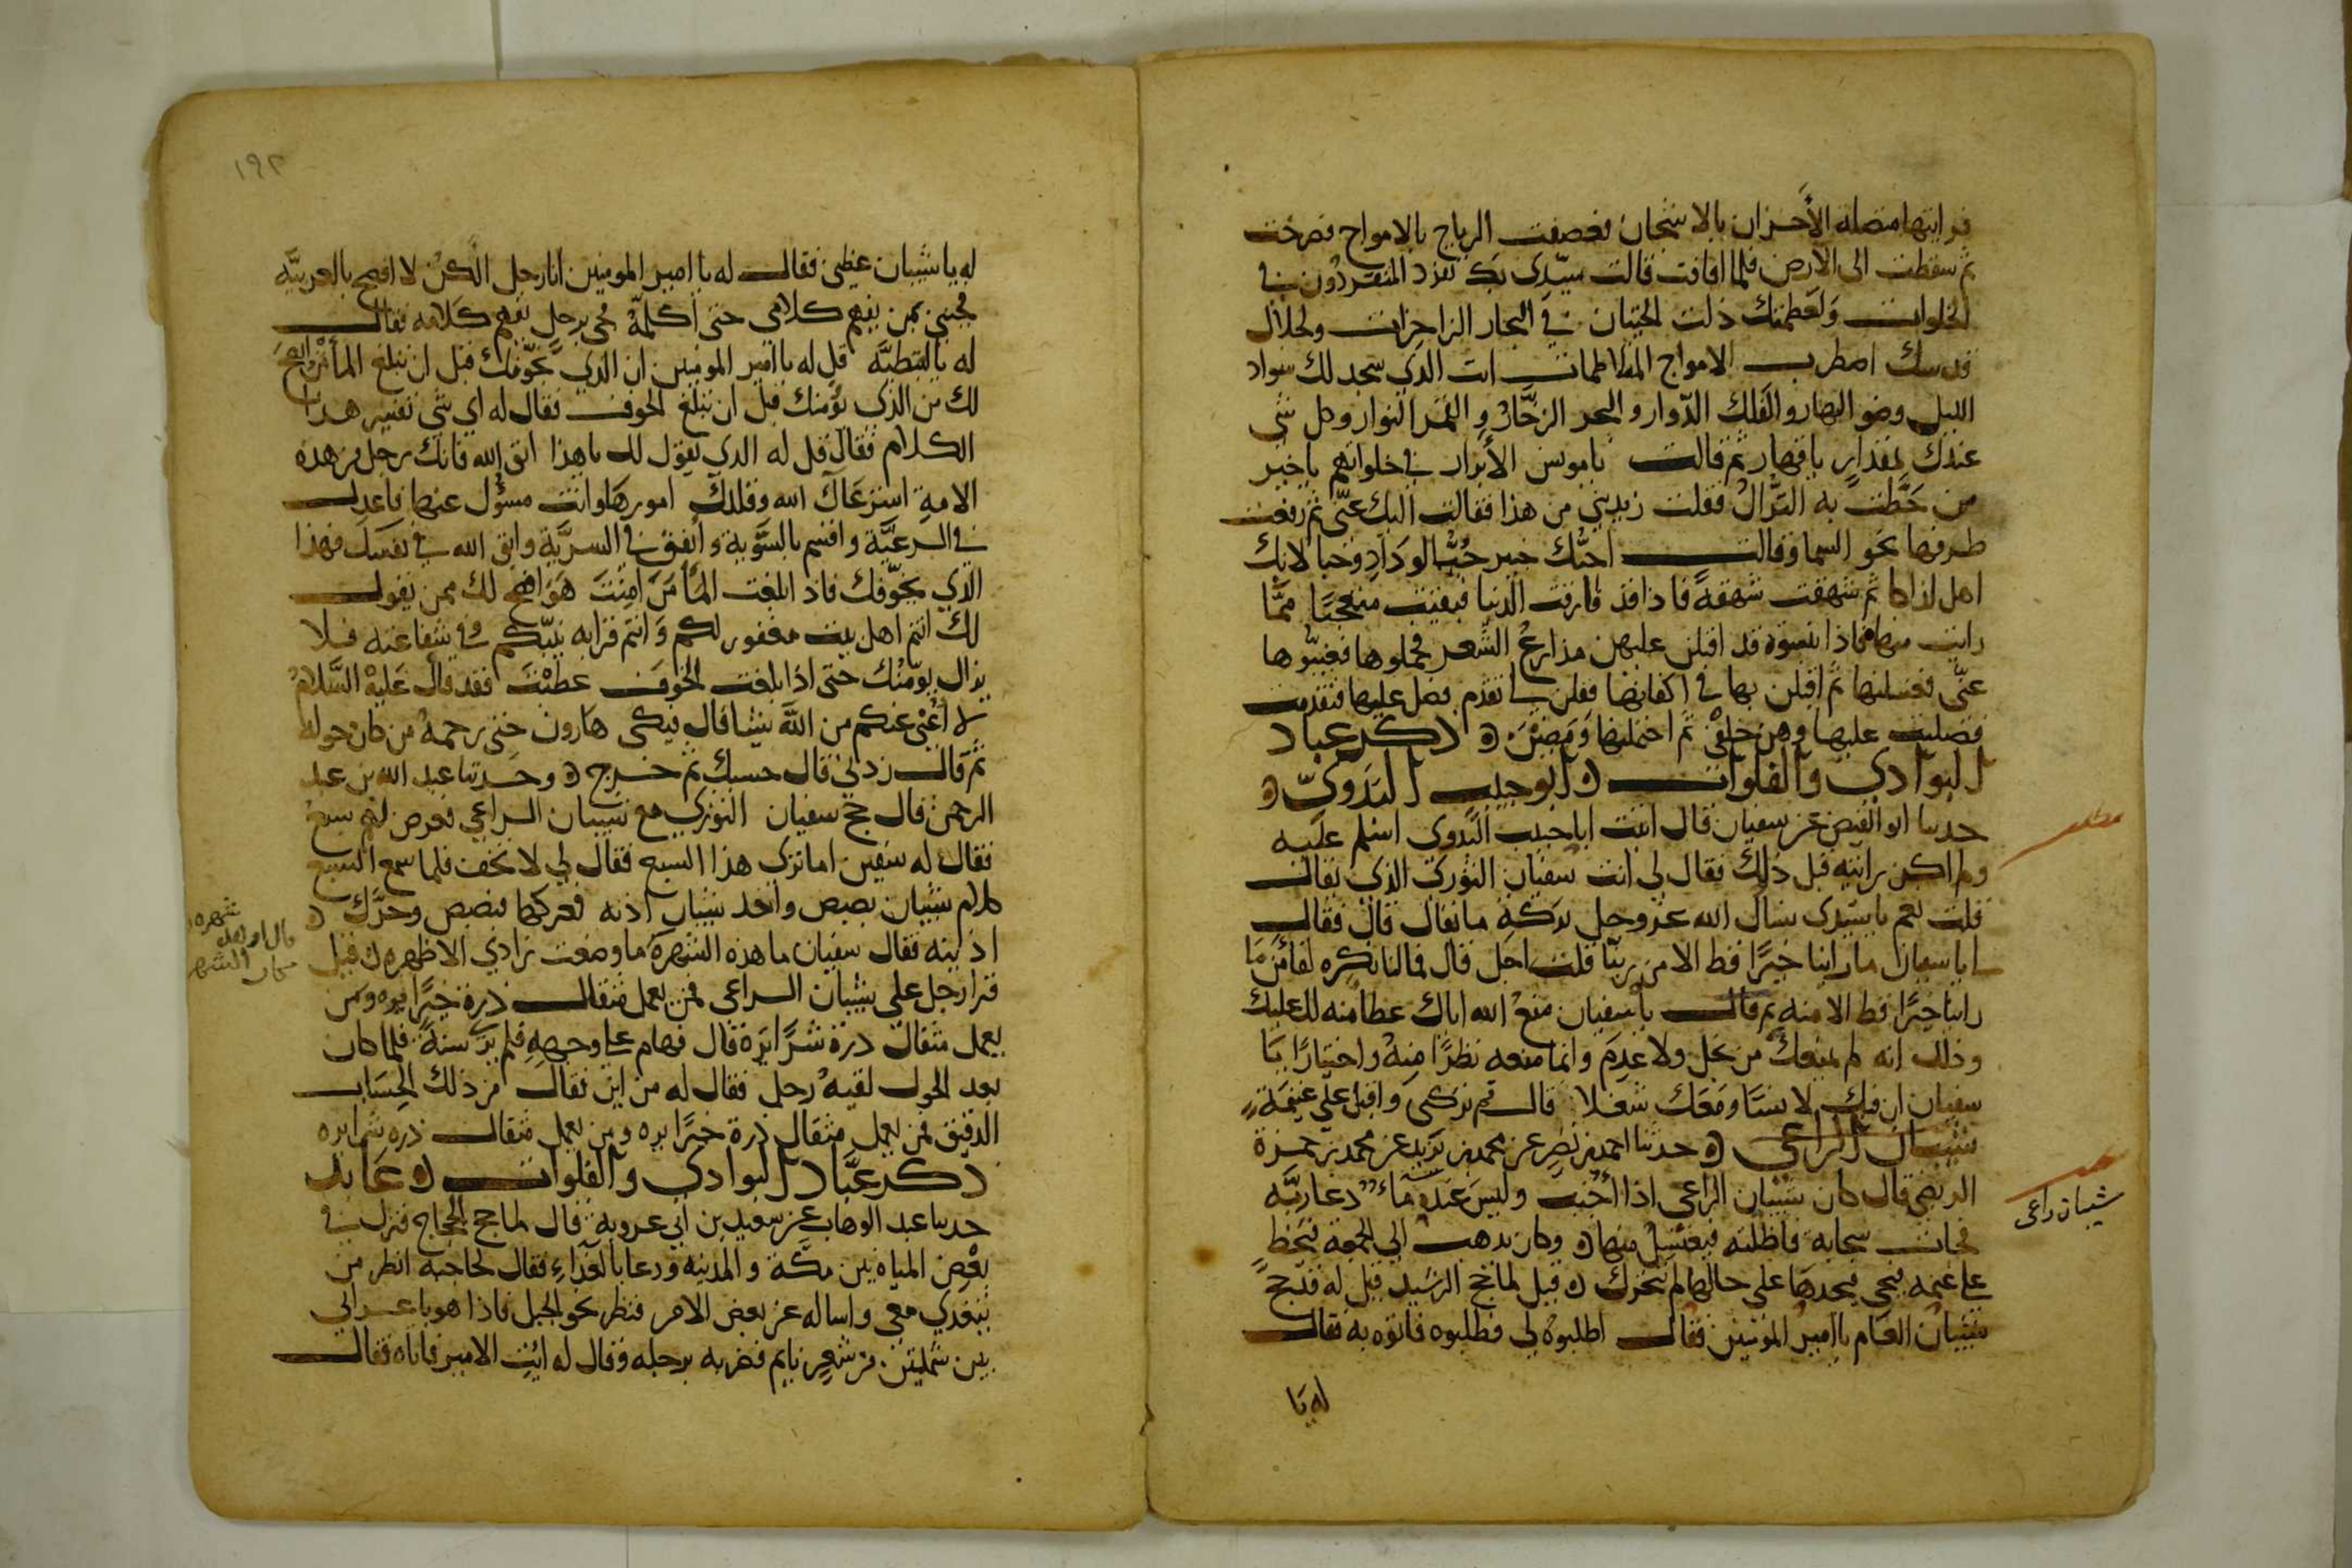 فرايتها متصلة الأحزان بالاشجان فعصفت الرياح بالامواج فصرخت
ثم سقطت الى الارض فلما افاقت قالت سيّدى بك تفرد المتفردون في
الخلوات ولعظمتك ذلت الحيتان في البحار الزاخرات ولجلال
قدسك اصطربت الامواج المتلاطمات انت الذي سجد لك سواد
الليل وضو النهار والفلك الدّوار والبحر الزخّار والقمر النوار وكل شى
عندك بمقدار يا قهار ثم قالت يا مونس الأبرار في خلواتهم يا خير
من حَطّت به النزّال فقلت زيديني من هذا فقالت اليك عنّى ثم رفعت
طرفها نحو السما وقالت احبّك حبين حبّ الوداد وحبا لانك
اهل لذاكا ثم شهقت شهقة فاذا قد فارقت الدنيا فبقيت متعجبًا ممّا
رايت منها فاذا بنسوة قد اقبلن عليهن مدارع الشعر فحملوها فغيبوها
عنّى فغسلنها ثم اقبلن بها في اكفانها فقلن لي تقدم فصل عليها فتقدمت
فصليت عليها وهن خلفى ثم احتملنها ومضين ذكر عباد
البوادي والفلوات ابو حبيب البَدَويّ
حدثنا ابو الفيض عن سفيان قال اتيت ابا حبيب البدوى اسلم عليه
ولم اكن رايته قبل ذلك فقال لي انت سفيان الثورى الذي يقال
قلت نعم يا سيدى نسال الله عز وجل بركة ما يقال قال فقال
يا سفيان ما راينا خيرًا قط الا من ربنّا قلت اجل قال فما لنا نكره لقا من ما
راينا خيرًا قط الا منه ثم قال يا سفيان منع الله اياك عطا منه لك عليك
وذلك انه لم يمنعك من بخل ولا عدم وانما منعه نظرًا منه واختبارًا يا
سفيان ان فيك لانسًا ومعك شغلا قال ثم تركنى واقبل على غنيمة
شيبان الراعى حدثنا احمد بن نصر عن محمد بن يزيد عن محمد بن حمزة
الربضى قال كان شيبان الراعى اذا اجنب وليس عنده ماء دعا ربّه
فجات سحابه فاظلته فيغتسل منها وكان يذهب الى الجمعة فيخط
على غنمه فيجى فيجدها على حالها لم تتحرك قيل لما حج الرشيد قيل له قد حج
شيبان العام يا امير المومنين فقال اطلبوه لي فطلبوه فاتوه به فقال
له يا
شيبان راعى
١٩٢
له يا شيبان عظنى فقال له يا امير المومنين انا رجل الكن لا افصح بالعربيّه
فجينى بمن يفهم كلامى حتى اكلمه فجى برجل يفهم كلامه فقال
له بالقبطيّه قل له يا امير المومنين ان الذي يخوّفك قبل ان تبلغ المأمن انصح
لك من الذي يؤمنك قبل ان تبلغ الخوف فقال له اي شى تفسير هذا
الكلام فقال قل له الذي يقول لك يا هذا اتق الله فانك رجل من هذه
الامة استرعاك الله وقلدك امورها وانت مسؤل عنها فاعدل
في الرعيّة واقسم بالسّوية وانفق في السريّة واتق الله في نفسك فهذا
الذي يخوّفك فاذا بلغت المأمن امنت هو انصح لك ممن يقول
لك انتم اهل بيت مغفور لكم وانتم قرابه نبيّكم وفي شفاعته فلا
يزال يومّنك حتى اذا بلغت الخوف عطبت فقد قال عليه السلام
لا أغنى عنكم من الله شيئا قال فبكى هارون حتى رحمه من كان حوله
ثم قال زدنى قال حسبك ثم خرج وحدثنا عبد الله بن عبد
الرحمن قال حج سفيان الثوري مع شيبان الراعي فعرض لهم سبع
فقال له سفين اما ترى هذا السبع فقال لي لا تخف فلما سمع السبع
كلام شيبان بصبص واخذ شيبان اذنه فعركها فبصبص وحرّك
اذنيه فقال سفيان ما هذه الشهرة ما وضعت زادي الا ظهره قيل
قرا رجل على شيبان الراعى فمن يعمل مثقال ذرة خيرًا يره ومن
يعمل مثقال ذرة شرًّا يَرَه قال فهام على وجهه فلم يُرَ سنةً فلما كان
بعد الحول لقيه رجل فقال له من اين فقال من ذلك الحساب
الدقيق فمن يعمل مثقال ذرة خيرًا يره ومن يعمل مثقال ذره شرا يره
ذكر عبّاد البوادي والفلوات عابد
حدثنا عبد الوهاب عن سعيد بن ابي عروبة قال لما حج الحجاج فنزل في
بعض المياه بين مكّة والمدينه ودعا بالغداء فقال لحاجبه انظر من
يتغدي معى واساله عن بعض الامر فنظر نحو الجبل فاذا هو باعرابي
بين شملتين من شعر نايم فضربه برجله وقال له ائت الامير فاتاه فقال